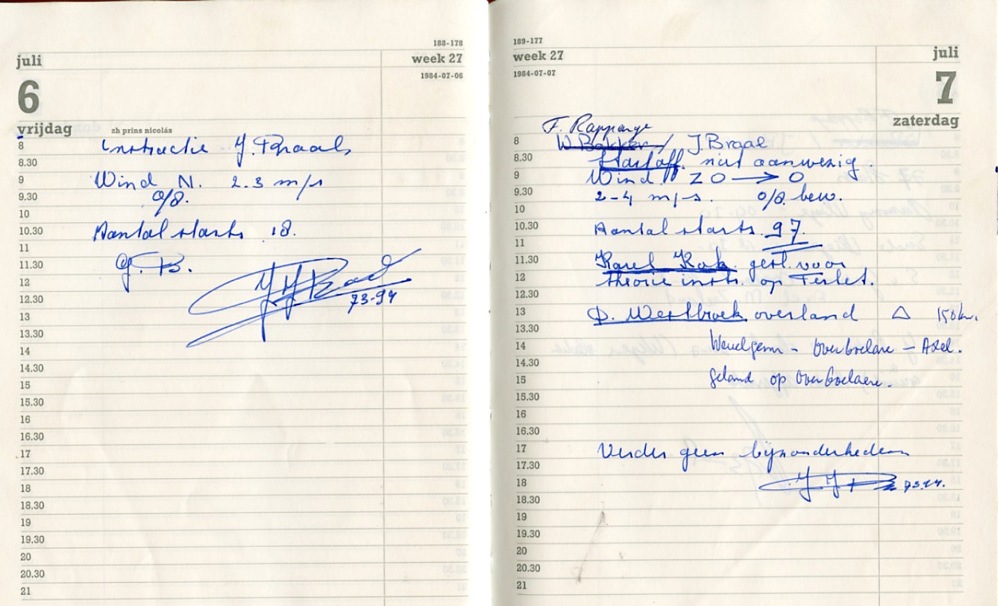 188-178
juli
week 27
1984-07-06
6
vrijdag
zh prins nicolás
8
instructie J. Braal
8.30
9
Wind N. 2.3 m/s
9.30
0/8.
10
10.30
Aantal starts 18.
11
11.30
J. B.
12
12.30
73-94
13
13.30
14
14.30
15
15.30
16
16.30
17
17.30
18
18.30
19
19.30
20
20.30
21
189-177
week 27
juli
1984-07-07
7
zaterdag
F. Rappange
8
W Bakker / J. Braal
8.30
niet aanwezig.
9
Wind ZO → O
9.30
2-4 m/s. 0/8 bew.
10
10.30
Aantal starts. 97.
11
11.30
Karel Kok gest. voor
12
theorie instr. op Terlet.
12.30
13
D. Westbroek overland △ 150 km.
13.30
14
Wevelgem - Overboelare - Axel.
14.30
15
geland op Overboelaere.
15.30
16
16.30
17
Verder geen bijzonderheden
17.30
18
18.30
19
19.30
20
20.30
21